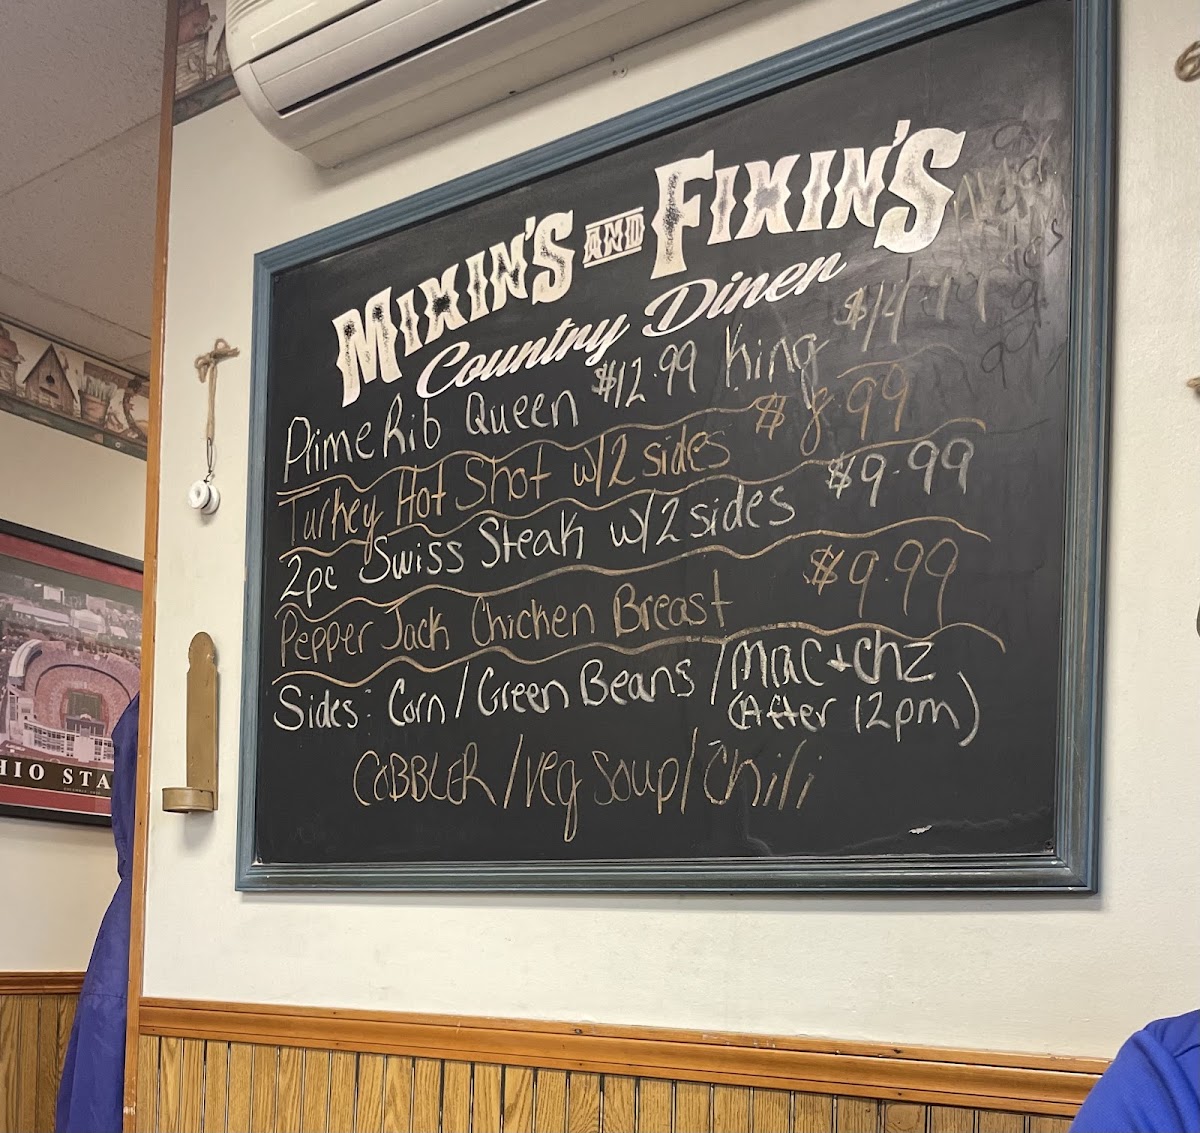 MIXIN'S AND FIXIN'S
Country Diner
Prime Rib Queen $12.99 King $14.99
Turkey Hot Shot w/2 sides $8.99
2pc Swiss Steak w/2 sides $9.99
Pepper Jack Chicken Breast $9.99
Sides: Corn / Green Beans / Mac + Chz
(After 12pm)
COBBLER / Veg Soup / Chili
HIO STA